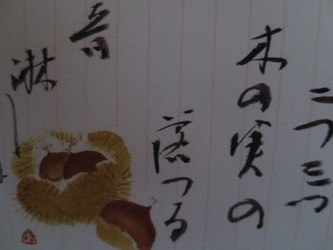 二つ三つ
木の実の
落つる
音
淋し